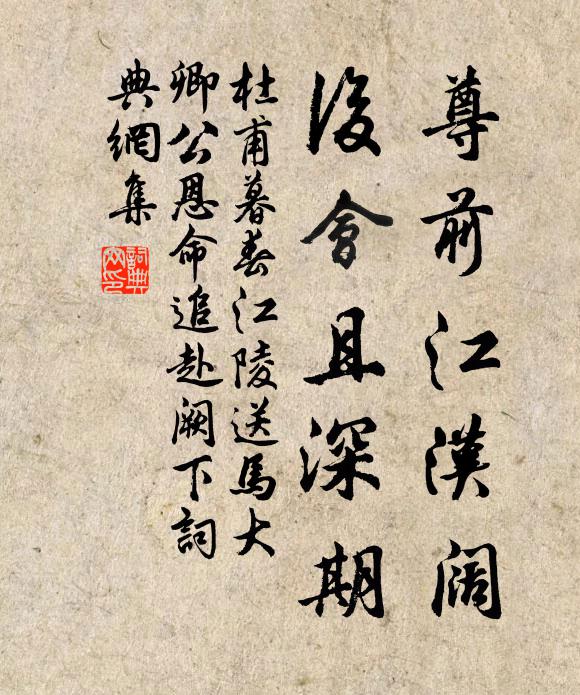 尊前江漢阔
後會且深期
杜甫暮春江陵送馬大
卿公恩命追赴阙下詞
典網集
詞典